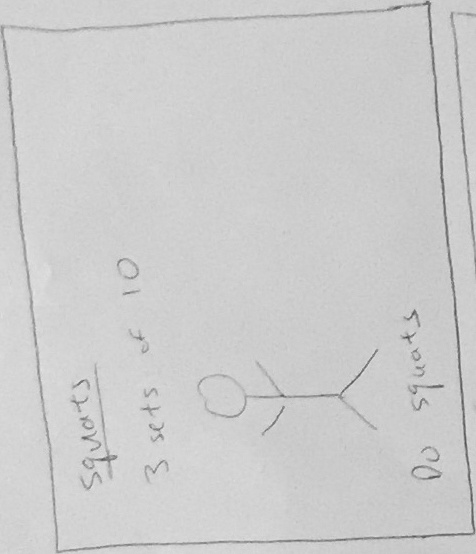 Squats
3 sets of 10
Do squats